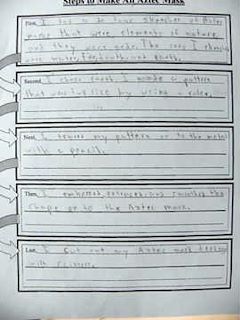 Steps to Make An Aztec Mask
First, I had to do four sketches of Aztec
masks that were elements of nature,
and they were
were water, fire, and earth.
Second, I chose earth. I made a pattern
that was by using a ruler.
Next, I traced my pattern on to the metal
with a pencil.
Then, I embossed, and smoothed the
shape on to the Aztec mask.
Last, I cut out my Aztec mask
with scissors.